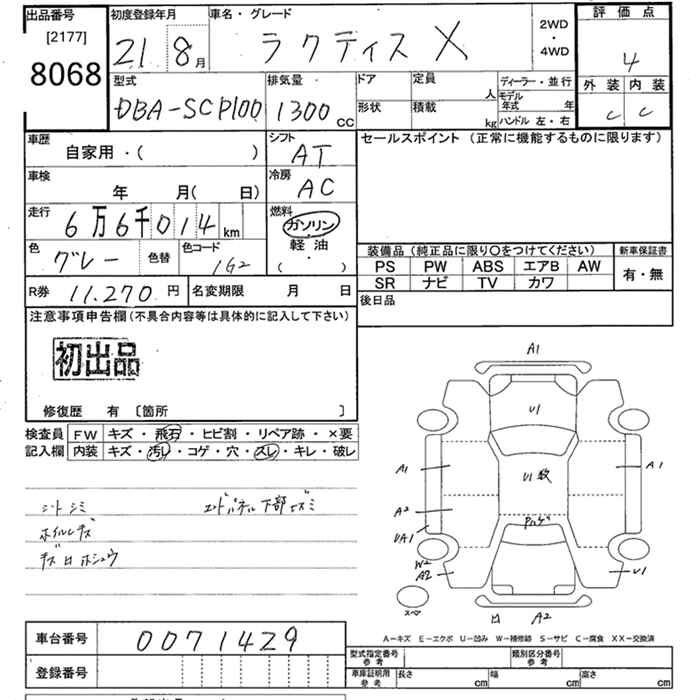 出品番号
[2177]
8068
初度登録年月
21 8月
車名・グレード
ラクティス X
2WD
・
4WD
評価点
4
外装 内装
C C
型式
DBA-SCP100
排気量
1300 CC
ドア
形状
定員
人
積載
kg
ディーラー・並行
モデル年式 年
ハンドル 左・右
車歴
自家用・( )
シフト
AT
車検
年 月( 日)
冷房
AC
走行
6万6千014km
燃料
ガソリン
・
軽油
( ・ )
色
グレー
色替
色コード
1G2
R券 11.270円
名変期限 月 日
セールスポイント (正常に機能するものに限ります)
装備品 (純正品に限り○をつけてください)
新車保証書
PS PW ABS エアB AW
SR ナビ TV カワ
有・無
後日品
注意事項申告欄(不具合内容等は具体的に記入して下さい)
初出品
修復歴 有 〔箇所 〕
検査員
記入欄
FW キズ・飛石・ヒビ割・リペア跡・×要
内装 キズ・汚レ・コゲ・穴・スレ・キレ・破レ
シートシミ
エンドパネル下部キズミ
ホイルキズ
キズロホシュウ
A1
U1
A1
A1
U1数
A2
UA1
W2
A2
U1
スペア
凹 A2
A-キズ E-エクボ U-凹み W-補修跡 S-サビ C-腐食 XX-交換済
車台番号
0071429
登録番号
型式指定番号
参考
類別区分番号
参考
車庫証明用
参考
長さ cm
幅 cm
高さ cm